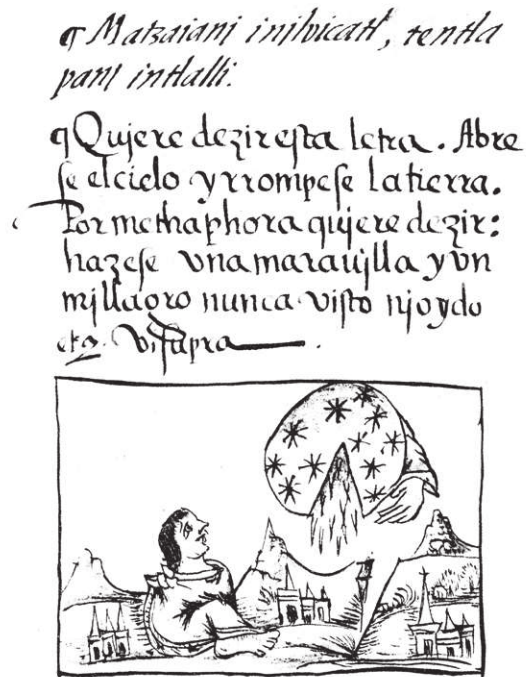 ¶ Matzaiani inilvicatl, tentla
pani intlalli.
¶ Qujere dezir esta letra. Abre
se el cielo y rrompese la tierra.
Por methaphora qujere dezir:
hazese vna maraujlla y vn
millagro nunca visto nj oydo
etz. vt supra